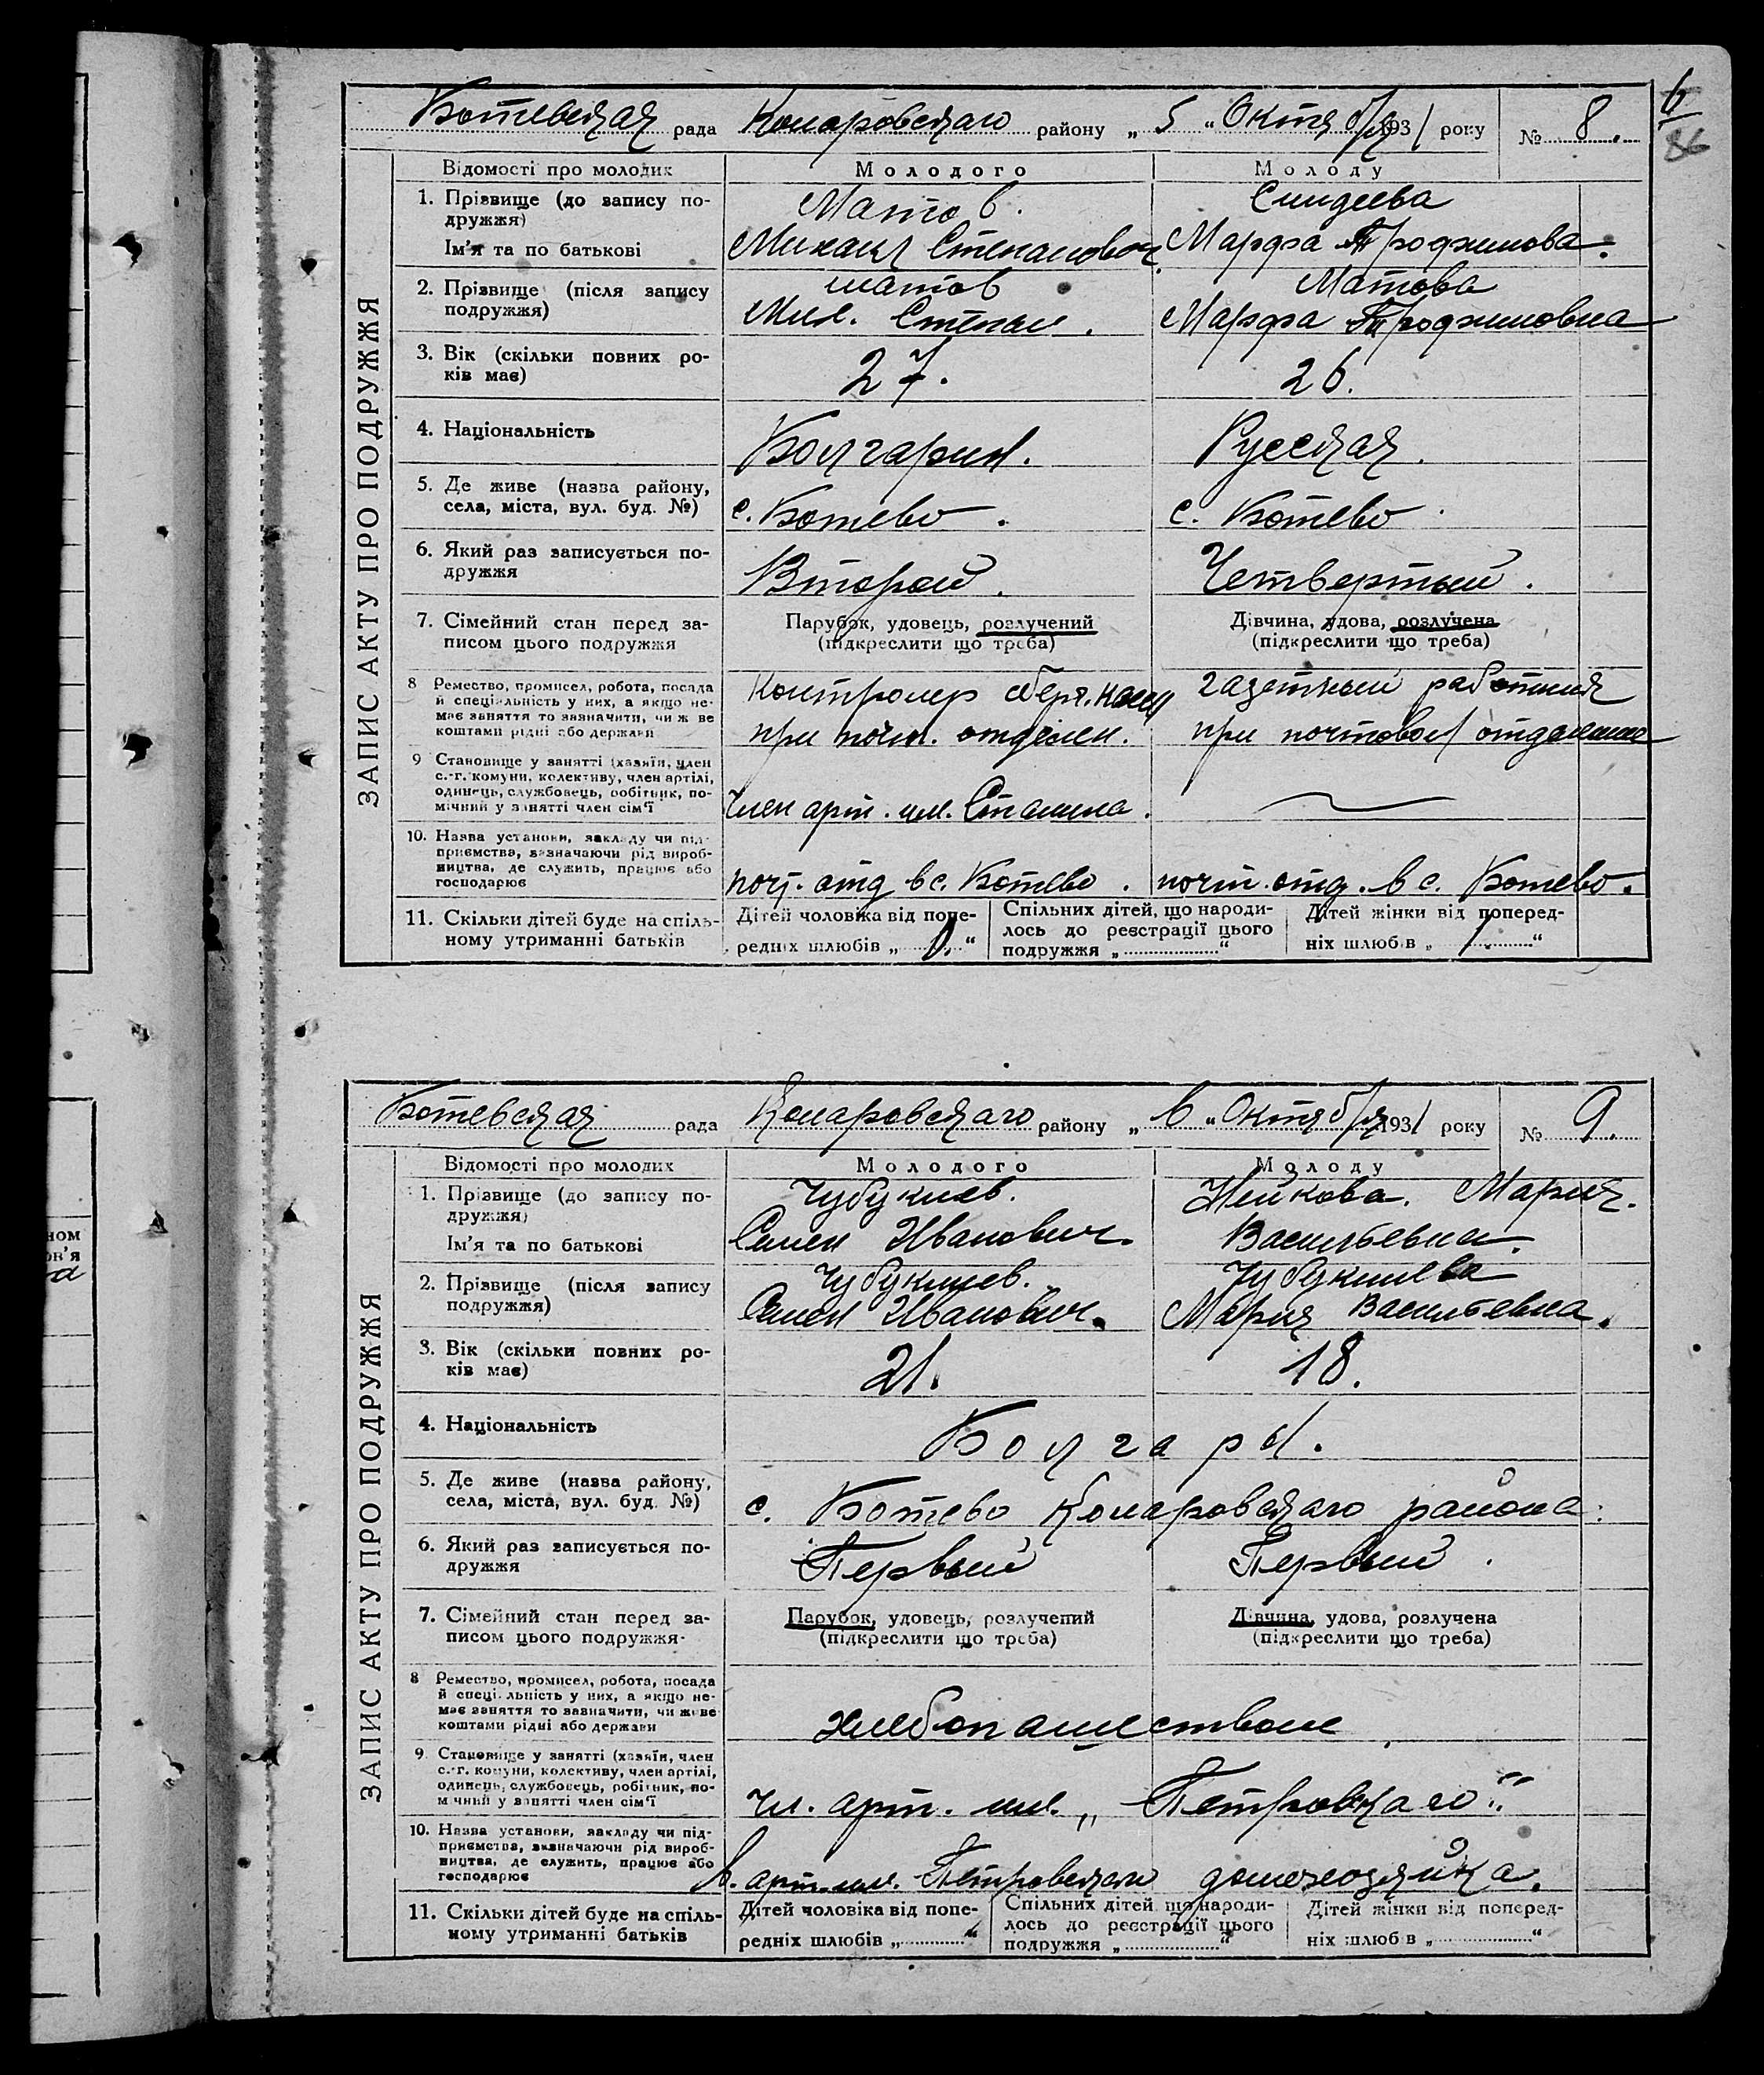 6
86
Ботевская рада Коларовскаго району „ 5 “ Октября 1931 року № 8.
Відомості про молодих Молодого Молоду
ЗАПИС АКТУ ПРО ПОДРУЖЖЯ
1. Прізвище (до запису по- Матов. Синдеева
дружжя)
Ім'я та по батькові Михаил Степанович Марфа Трофимова.
2. Прізвище (після запису матов Матова
подружжя) Мих. Степан. Марфа Трофимовна
3. Вік (скільки повних ро- 27. 26.
ків має)
4. Національність Болгарин. Русская.
5. Де живе (назва району, с. Ботево. с. Ботево
села, міста, вул. буд. №)
6. Який раз записується по- Второй. Четвертый.
дружжя
7. Сімейний стан перед за- Парубок, удовець, розлучений Дівчина, удова, розлучена
писом цього подружжя (підкреслити що треба) (підкреслити що треба)
8 Ремество, промисел, робота, посада Контролер сбер. касы газетный работник
й спеціальність у них, а якщо не-
має заняття то зазначити, чи ж ве при почт. отделен. при почтовом отделении
коштами рідні або держави
9 Становище у занятті (хазяїн, член
с.-г. комуни, колективу, член артілі,
одинець, службовець, робітник, по- Член арт. им. Сталина.
мічний у занятті член сім'ї
10. Назва установи, закладу чи під-
приємства, зазначаючи рід вироб-
ництва, де служить, працює або почт. отд в с. Ботево. почт. отд. в с. Ботево.
господарює
11. Скільки дітей буде на спіль- Дітей чоловіка від попе- Спільних дітей, що народи- Дітей жінки від поперед-
ному утриманні батьків редніх шлюбів „ 1. “ лось до реєстрації цього ніх шлюбів „ 1. “
подружжя „ “
Ботевская рада Коларовскаго району „ 6 “ Октября 1931 року № 9.
Відомості про молодих Молодого Молоду
ЗАПИС АКТУ ПРО ПОДРУЖЖЯ
1. Прізвище (до запису по- Чубуклиев. Нейкова. Мария.
дружжя)
Ім'я та по батькові Семен Иванович. Васильевна.
2. Прізвище (після запису Чубуклиев. Чубуклиева
подружжя) Семен Иванович. Мария Васильевна.
3. Вік (скільки повних ро- 21. 18.
ків має)
4. Національність Болгары.
5. Де живе (назва району, с. Ботево Коларовскаго района.
села, міста, вул. буд. №)
6. Який раз записується по- Первый Первый.
дружжя
7. Сімейний стан перед за- Парубок, удовець, розлучений Дівчина, удова, розлучена
писом цього подружжя (підкреслити що треба) (підкреслити що треба)
8 Ремество, промисел, робота, посада
й спеціальність у них, а якщо не-
має заняття то зазначити, чи живе хлебопашеством
коштами рідні або держави
9 Становище у занятті (хазяїн, член
с.-г. комуни, колективу, член артілі,
одинець, службовець, робітник, по- Чл. арт. им. „Петровскаго“
мічний у занятті член сім'ї
10. Назва установи, закладу чи під-
приємства, зазначаючи рід вироб-
ництва, де служить, працює або арт. им. Петровскаго домохозяйка.
господарює
11. Скільки дітей буде на спіль- Дітей чоловіка від попе- Спільних дітей, що народи- Дітей жінки від поперед-
ному утриманні батьків редніх шлюбів „ “ лось до реєстрації цього ніх шлюбів „ “
подружжя „ “